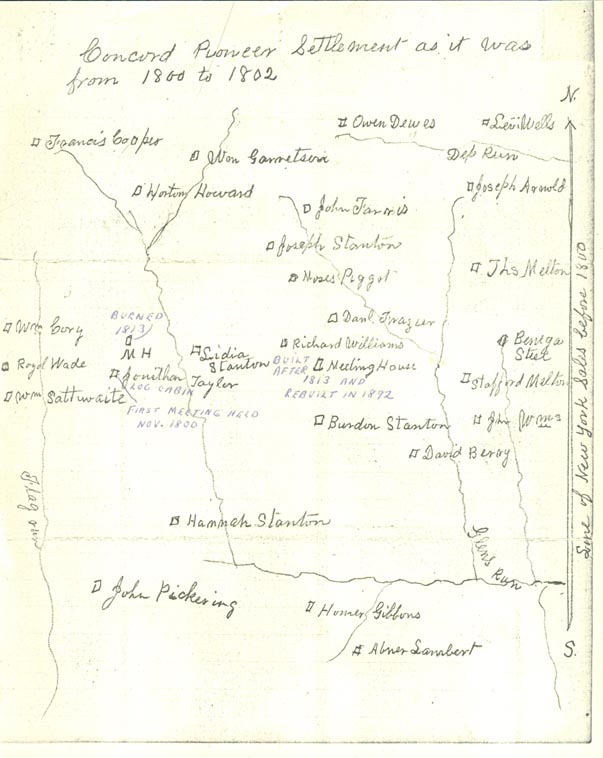 Concord Pioneer Settlement as it was
from 1800 to 1802
N.
Owen Dewes
Levi Wells
Francis Cooper
Dep Run
Wm Garretson
Horton Howard
Joseph Arnold
John Farris
Joseph Stanton
Ths Melton
Moses Piggot
Danl. Frazier
Wm Cory
BURNED
1813)
M H
Lidia
Stanton
Richard Williams
Benega
Steel
Royal Wade
BUILT
AFTER
1813 AND
REBUILT IN 1892
Meeting House
Jonithan Tayler
LOG CABIN
Stafford Melton
Wm Sattwaite
FIRST MEETING HELD
NOV. 1800
Burdon Stanton
Jhn Wms
David Berry
Line of New York Sals before 1800
Flag run
Hannah Stanton
Glens Run
John Pickering
Homer Gibbons
Abner Lambert
S.